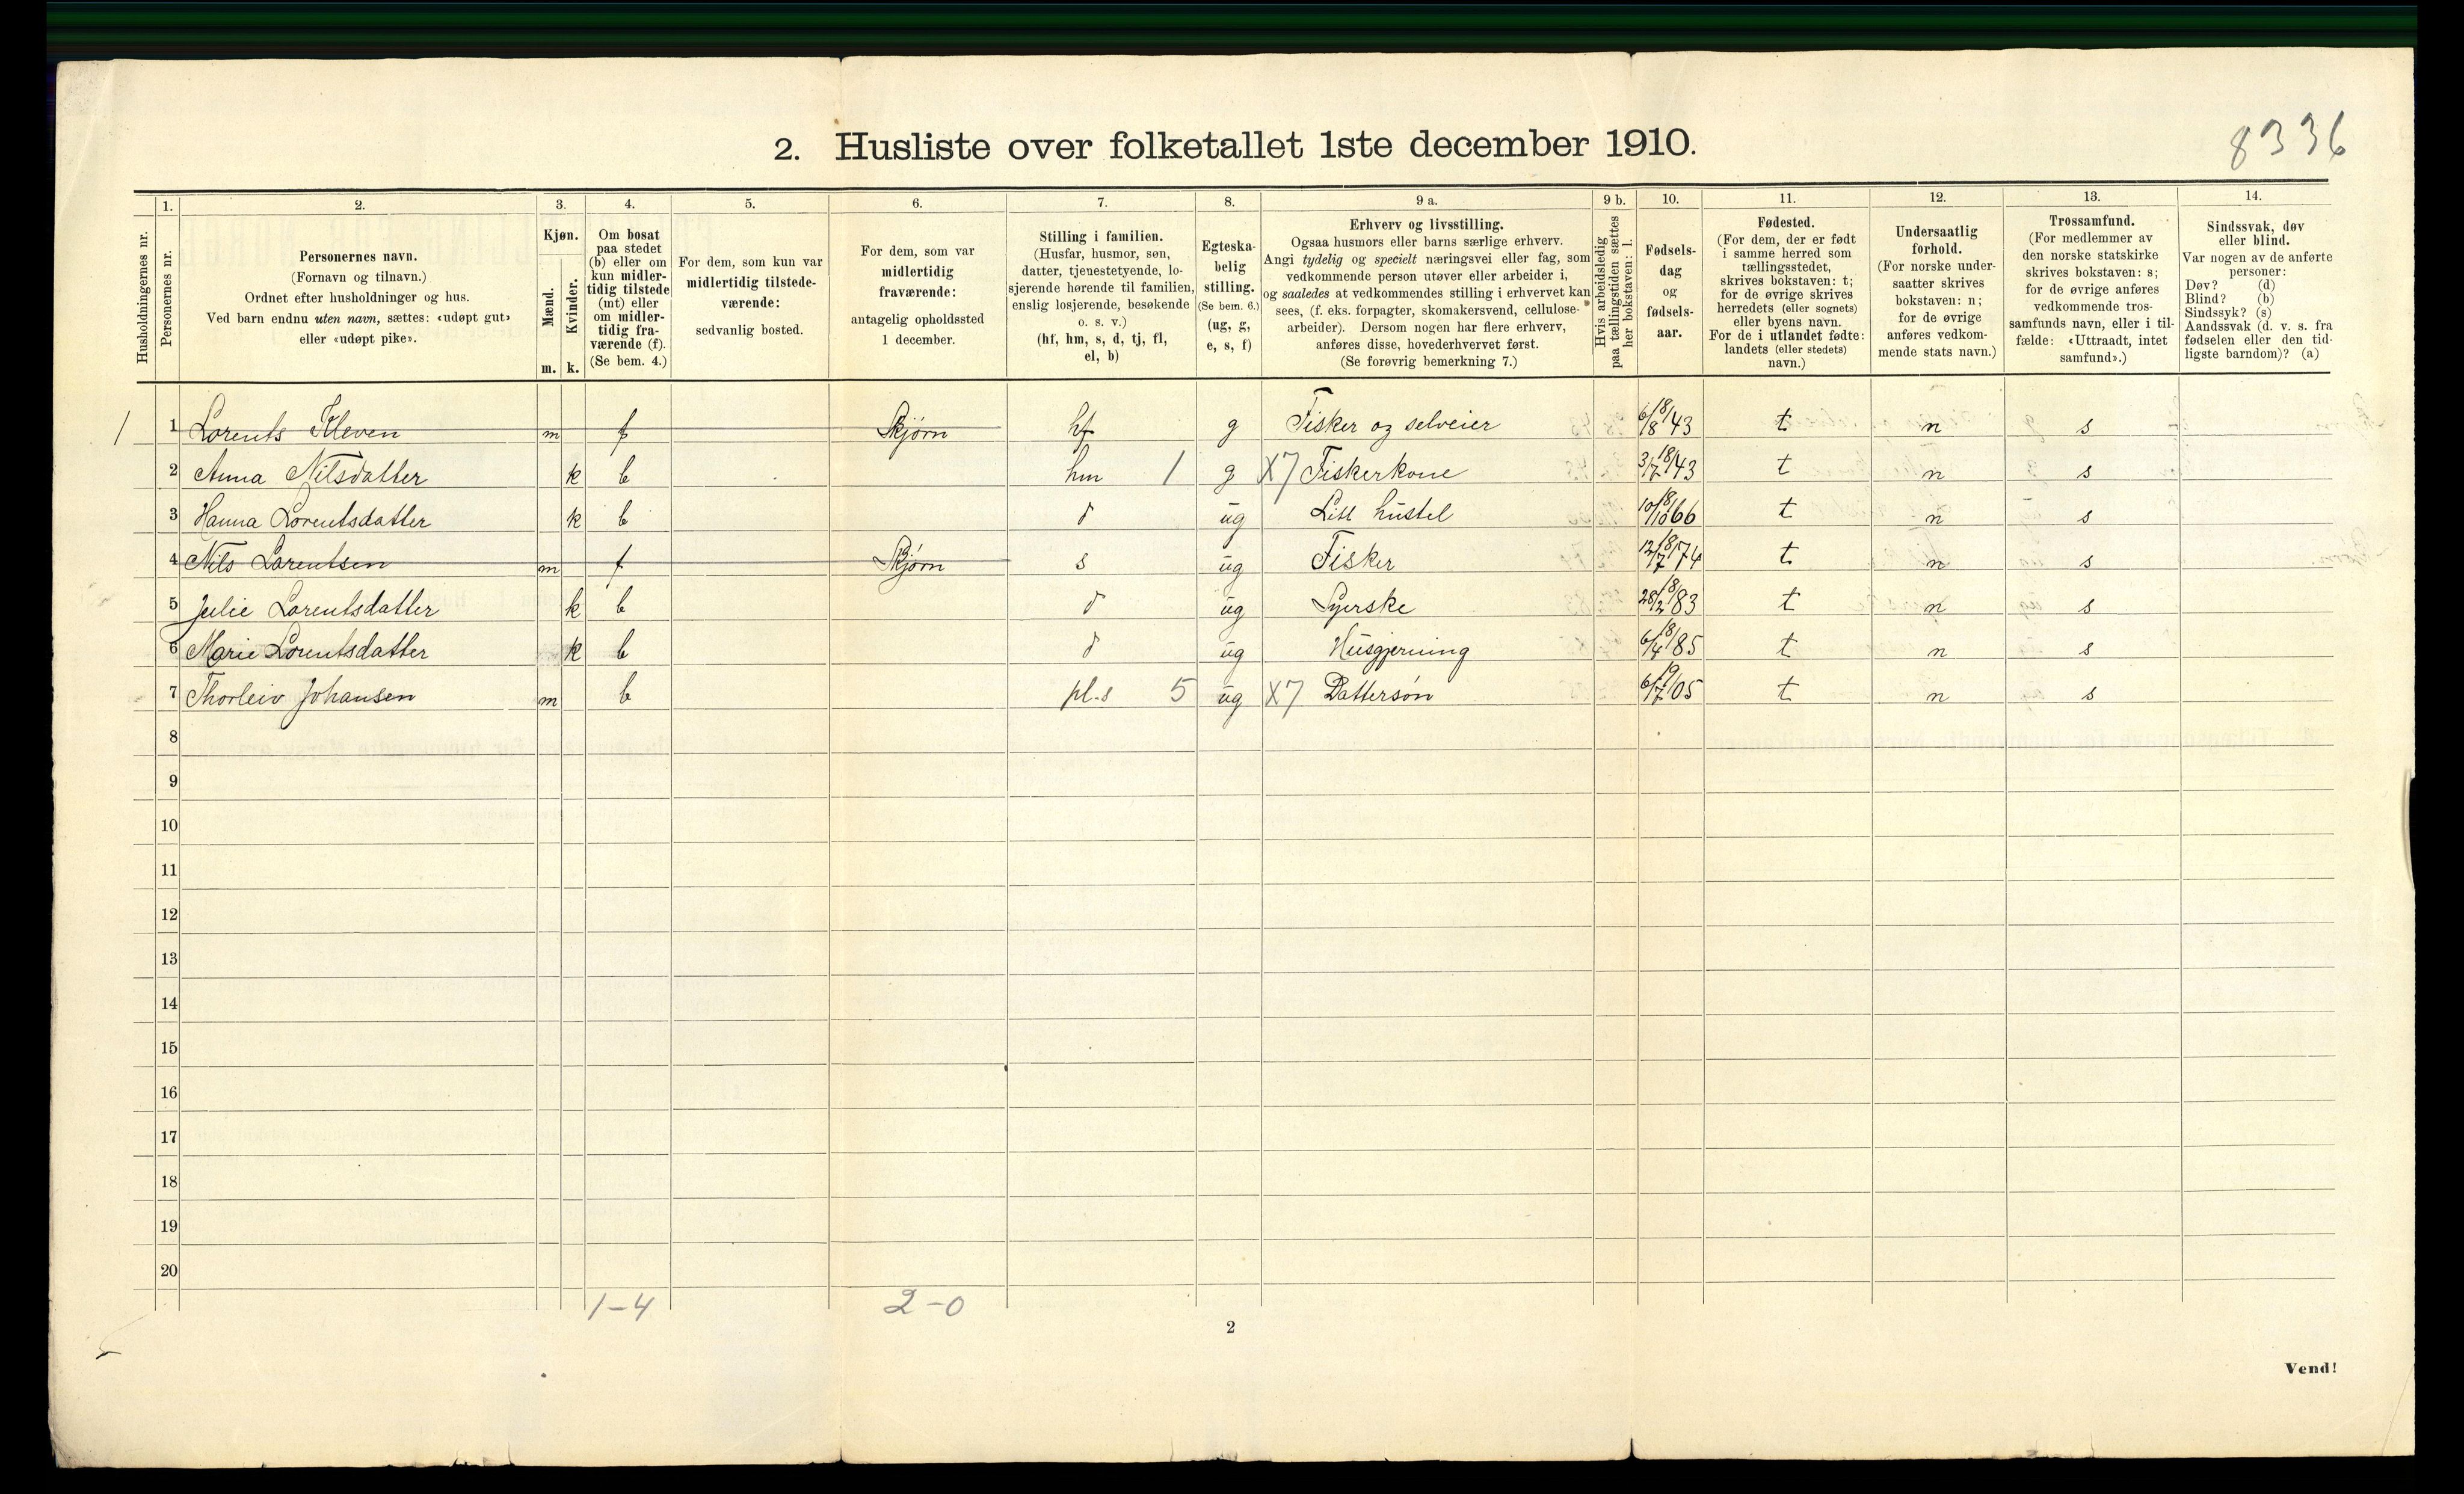 2. Husliste over folketallet 1ste december 1910.
8336
Husholdningernes nr.
1.
Personernes nr.
2.
Personernes navn.
(Fornavn og tilnavn.)
Ordnet efter husholdninger og hus.
Ved barn endnu uten navn, sættes: «udøpt gut»
eller «udøpt pike».
3.
Kjøn.
Mænd.
Kvinder.
m. k.
4.
Om bosat
paa stedet
(b) eller om
kun midler-
tidig tilstede
(mt) eller
om midler-
tidig fra-
værende (f).
(Se bem. 4.)
5.
For dem, som kun var
midlertidig tilstede-
værende:
sedvanlig bosted.
6.
For dem, som var
midlertidig
fraværende:
antagelig opholdssted
1 december.
7.
Stilling i familien.
(Husfar, husmor, søn,
datter, tjenestetyende, lo-
sjerende hørende til familien,
enslig losjerende, besøkende
o. s. v.)
(hf, hm, s, d, tj, fl,
el, b)
8.
Egteska-
belig
stilling.
(Se bem. 6.)
(ug, g,
e, s, f)
9 a.
Erhverv og livsstilling.
Ogsaa husmors eller barns særlige erhverv.
Angi tydelig og specielt næringsvei eller fag, som
vedkommende person utøver eller arbeider i,
og saaledes at vedkommendes stilling i erhvervet kan
sees, (f. eks. forpagter, skomakersvend, cellulose-
arbeider). Dersom nogen har flere erhverv,
anføres disse, hovederhvervet først.
(Se forøvrig bemerkning 7.)
9 b.
Hvis arbeidsledig
paa tællingstiden sættes
her bokstaven: l.
10.
Fødsels-
dag
og
fødsels-
aar.
11.
Fødested.
(For dem, der er født
i samme herred som
tællingsstedet,
skrives bokstaven: t;
for de øvrige skrives
herredets (eller sognets)
eller byens navn.
For de i utlandet fødte:
landets (eller stedets)
navn.)
12.
Undersaatlig
forhold.
(For norske under-
saatter skrives
bokstaven: n;
for de øvrige
anføres vedkom-
mende stats navn.)
13.
Trossamfund.
(For medlemmer av
den norske statskirke
skrives bokstaven: s;
for de øvrige anføres
vedkommende tros-
samfunds navn, eller i til-
fælde: «Uttraadt, intet
samfund».)
14.
Sindssvak, døv
eller blind.
Var nogen av de anførte
personer:
Døv? (d)
Blind? (b)
Sindssyk? (s)
Aandssvak (d. v. s. fra
fødselen eller den tid-
ligste barndom)? (a)
1 1 Lorents Kleven m f Skjørn hf g Fisker og selveier 6/8 18/43 t n s
2 Anna Nilsdatter k b hm 1 g X7 Fiskerkone 3/7 18/43 t n s
3 Hanna Lorentsdatter k b d ug Litt hustel 10/10 18/66 t n s
4 Nils Lorentsen m f Skjørn s ug Fisker 12/7 18/74 t n s
5 Julie Lorentsdatter k b d ug Syerske 28/2 18/83 t n s
6 Marie Lorentsdatter k b d ug Husgjerning 6/4 18/85 t n s
7 Thorleiv Johansen m b pl.s 5 ug X7 Dattersøn 6/7 19/05 t n s
8
9
10
11
12
13
14
15
16
17
18
19
20
1-4 2-0
2
Vend!